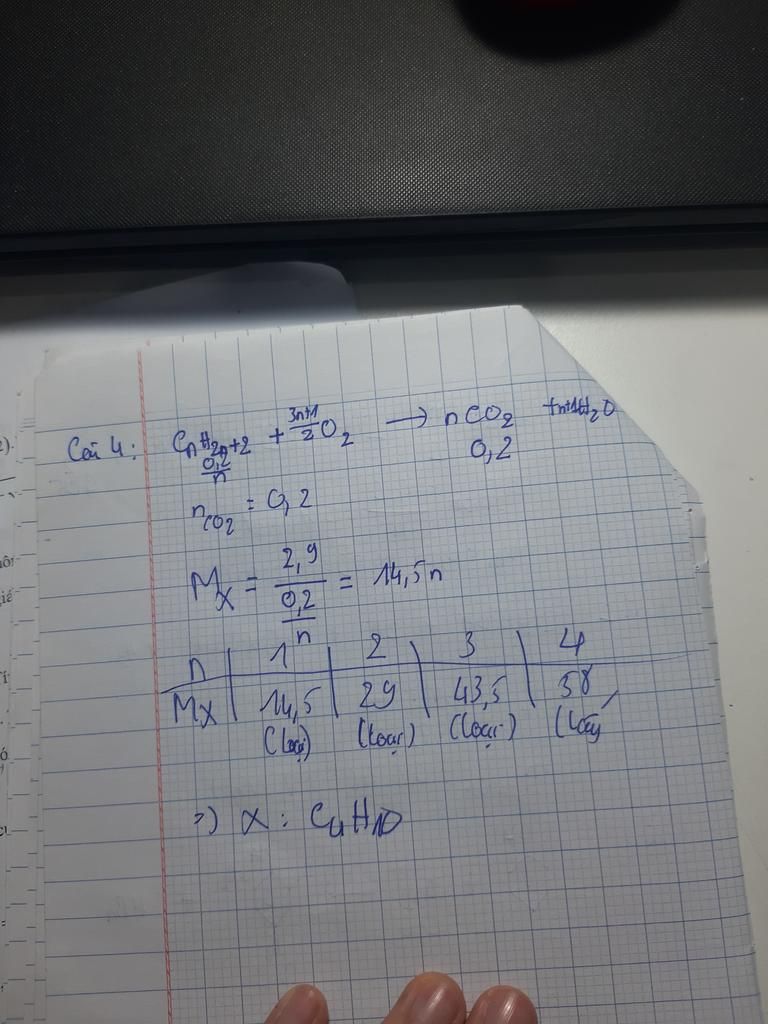 Câu 4: CnH2n+2 + 3n+1/2 O2 → nCO2 + n+1H2O
0,2/n 0,2
nCO2 = 0,2
MX = 2,9/(0,2/n) = 14,5n
n | 1 | 2 | 3 | 4
MX | 14,5 | 29 | 43,5 | 58
(loại) (loại) (loại) (lấy)
=) X : C4H10